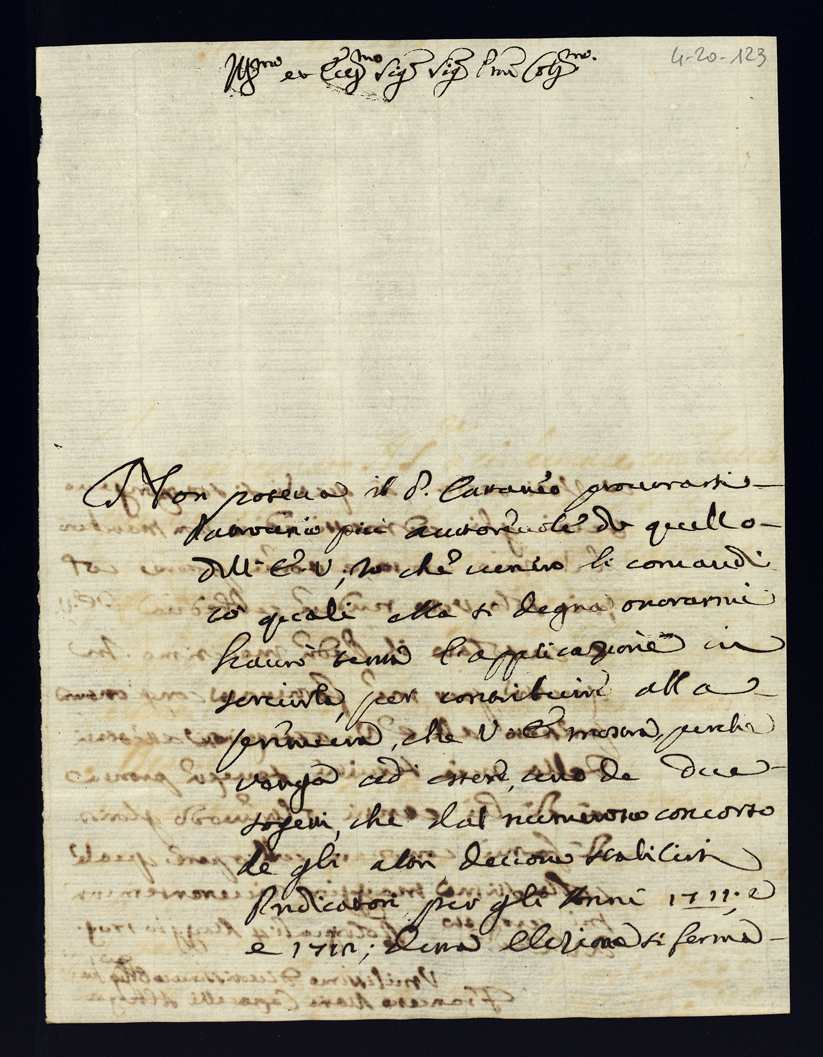 Ill.mo et Ecc.mo Sig.r Sig.r P.ron Col.mo
4-20-123
Non poteva il P. Cattaneo procurarsi
Patrocinio più autorevole di quello
dell' E. V., io che venero li comandi
co' quali ella si degna onorarmi
havrò tutta l'applicazione in
servirla, per contribuire alla
premura, che V. E. mostra, perche
venga ad essere uno de due
sogetti, che dal numeroso concorso
de gli altri devono stabilirsi
Predicatori per gli Anni 1711; e
e 1712; detta Elezione si ferma